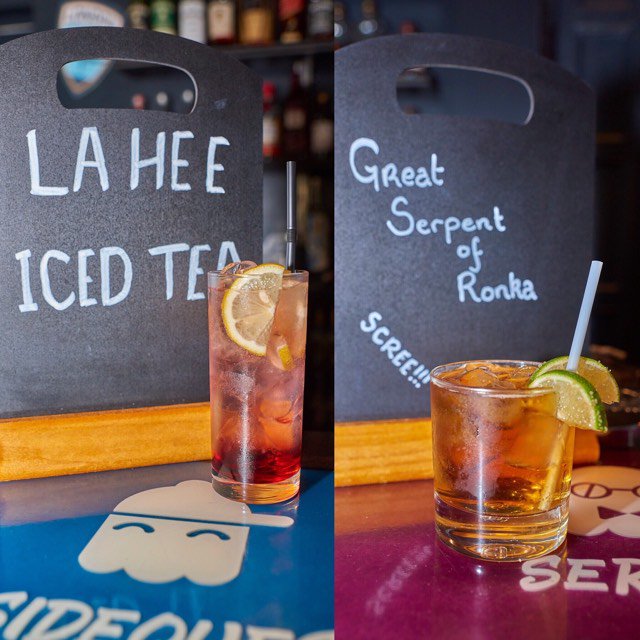 LA HEE
ICED TEA
Great
Serpent
of
Ronka
SCREE!!!
SIDEQUES
SER